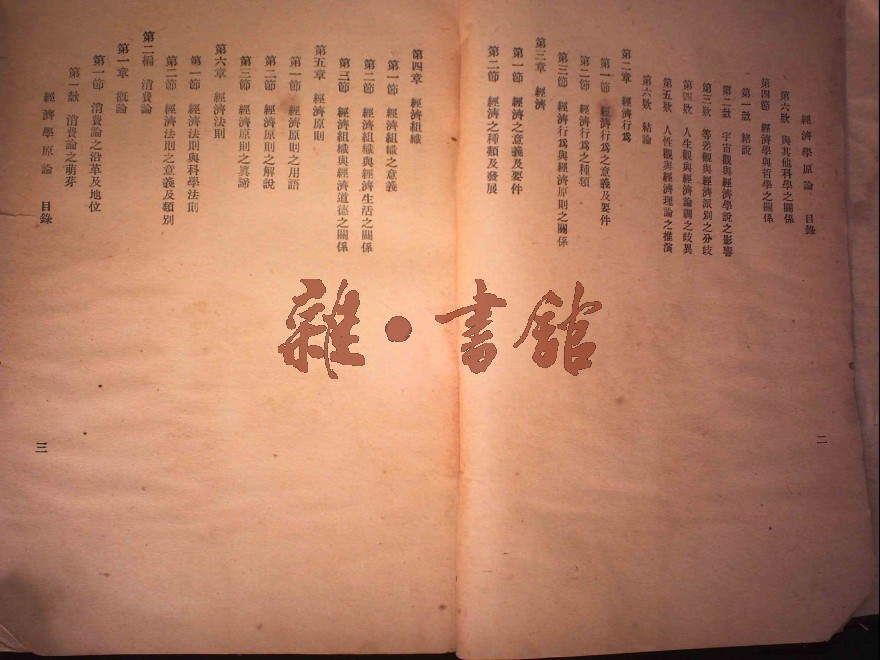 經濟學原論　目錄
第六欵　與其他科學之關係
第四節　經濟學與哲學之關係
第一欵　緒說
第二欵　宇宙觀與經濟學說之影響
第三欵　等差觀與經濟派別之分歧
第四欵　人生觀與經濟論調之歧異
第五欵　人性觀與經濟理論之推演
第六欵　結論
第二章　經濟行爲
第一節　經濟行爲之意義及要件
第二節　經濟行爲之種類
第三節　經濟行爲與經濟原則之關係
第三章　經濟
第一節　經濟之意義及要件
第二節　經濟之種類及發展
二
第四章　經濟組織
第一節　經濟組織之意義
第二節　經濟組織與經濟生活之關係
第三節　經濟組織與經濟道德之關係
第五章　經濟原則
第一節　經濟原則之用語
第二節　經濟原則之解說
第三節　經濟原則之眞諦
第六章　經濟法則
第一節　經濟法則與科學法則
第二節　經濟法則之意義及類別
第二編　消費論
第一章　槪論
第一節　消費論之沿革及地位
第一欵　消費論之萌芽
經濟學原論　目錄
三
雜·書館